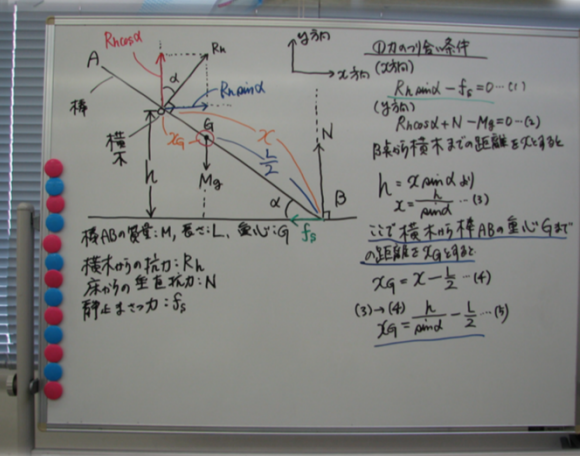 Rhcosα
Rh
A
α
Rhsinα
棒
横木
xG
G
x
L/2
h
Mg
N
α
B
fs
y方向
x方向
棒ABの質量:M, 長さ:L, 重心:G
横木からの抗力:Rh
床からの垂直抗力:N
静止まさつ力:fs
①力のつり合い条件
(x方向)
Rhsinα-fs=0…(1)
(y方向)
Rhcosα+N-Mg=0…(2)
B点から横木までの距離をxとすると
h=xsinαより
x=h/sinα…(3)
ここで横木から棒ABの重心Gまで
の距離をxGとすると
xG=x-L/2…(4)
(3)→(4)
xG=h/sinα-L/2…(5)